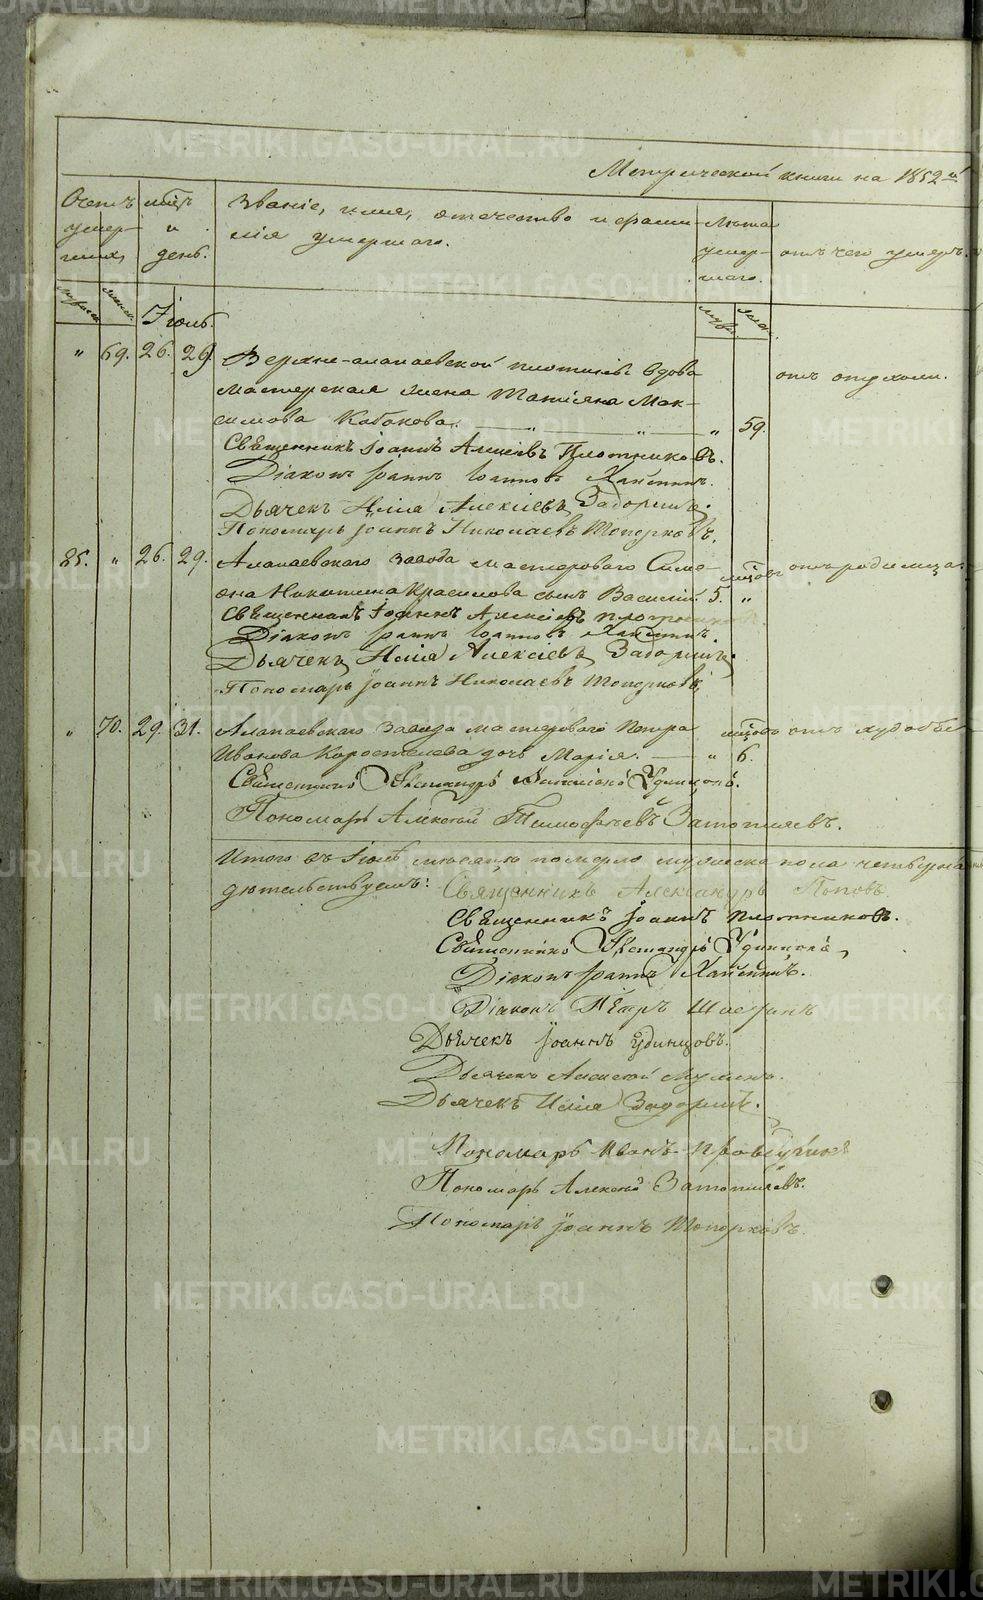 Метрической книги на 1852й
Счетъ умер- шихъ
мцъ и день.
Званіе, имя, отечество и фами-
лія умершаго.
Лѣта умер- шаго
отъ чего умеръ.
мужеск. женск.
Іюль.
муж. жен.
„ 69. 26. 29. Верхне-алапаевской плотины вдова
мастерская жена Татіяна Мак-
симова Кабакова. — „ — „ 59. отъ опухоли.
Священникъ Іоаннъ Алексіевъ Плотниковъ.
Діаконъ Іоаннъ Іоанновъ Хлопинъ.
Дьячекъ Илія Алексіевъ Задоринъ.
Пономарь Іоаннъ Николаевъ Топорковъ.
85. „ 26. 29. Алапаевского завода мастероваго Симе-
она Никитина Красилова сынъ Василій. мцовъ 5. „ отъ родимца.
Священникъ Іоаннъ Алексіевъ Плотниковъ.
Діаконъ Іоаннъ Іоанновъ
Дьячекъ Илія Алексіевъ Задоринъ.
Пономарь Іоаннъ Николаевъ Топорковъ.
„ 70. 29. 31. Алапаевского Завода мастероваго Петра мцовъ отъ худобы
Иванова Коростелева дочь Марія. — „ 6.
Священникъ Александръ Удинцовъ.
Пономарь Алексѣй Тимофѣевъ Затопляевъ.
Итого въ Іюлѣ мѣсяцѣ померло мужеска пола четверна
дѣтельствуемъ: Священникъ Александръ Поповъ
Священникъ Іоаннъ Плотниковъ.
Священникъ Александръ Удинцовъ
Діаконъ Іоаннъ
Діаконъ Петръ
Дьячекъ Іоаннъ Удинцовъ.
Дьячекъ Алексѣй
Дьячекъ Илія Задоринъ.
Пономарь Иванъ
Пономарь Алексѣй Затопляевъ.
Пономарь Іоаннъ Топорковъ.
METRIKI.GASO-URAL.RU